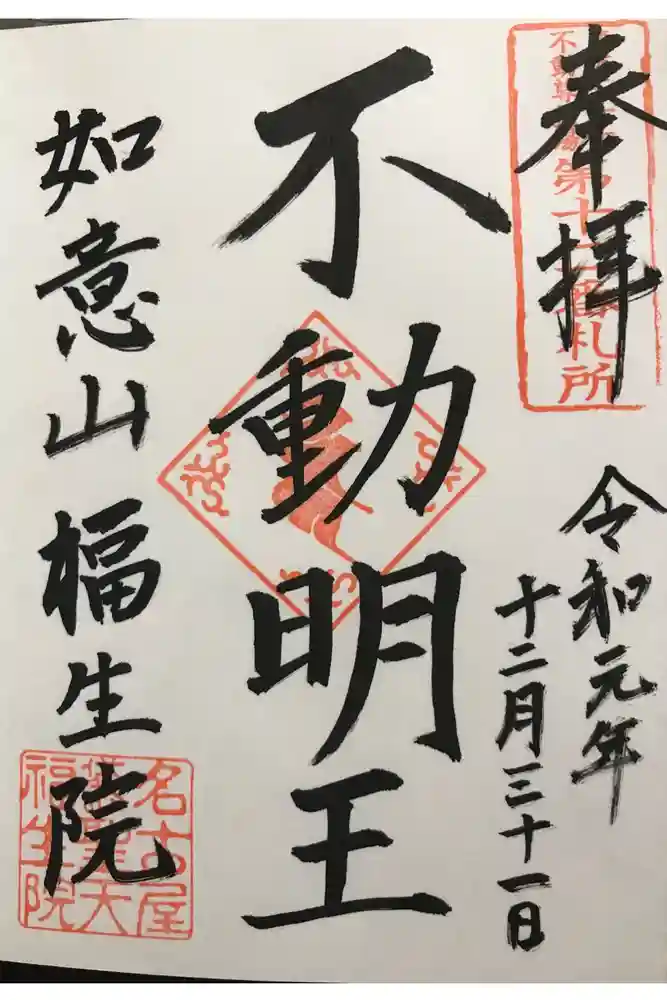 奉拝
第十二番札所
令和元年
十二月三十一日
不動明王
如意山福生院
名古屋
袋聖天
福生院